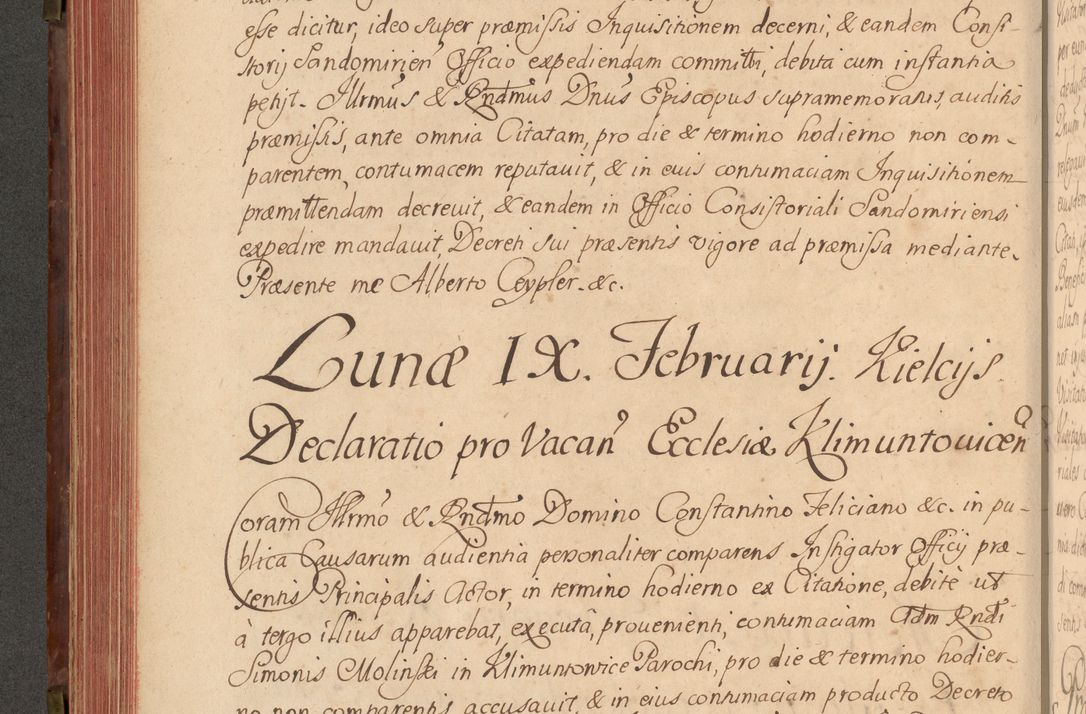 esse dicitur, ideo super præmissis Inquisitionem decerni, & eandem Consi-
storij Sandomirien Officio expediendam committi, debita cum instantia
petijt. Illrmus & Rndmus Dnus Episcopus supramemoratus, auditis
præmissis, ante omnia Citatam, pro die & termino hodierno non com-
parentem, contumacem reputauit, & in euis contumaciam Inquisitionem
præmittendam decreuit, & eandem in Officio Consistoriali Sandomiriensi
expedire mandauit, Decreti sui præsentis vigore ad præmissa mediante.
Præsente me Alberto Ceypler. &c.
Lunæ IX. Februarij. Kielcijs
Declaratio pro Vacan Ecclesiæ Klimuntouicen
Coram Illrmo & Rndmo Domino Constantino Feliciano &c. in pu-
blica Causarum audientia personaliter comparens Instigator Officij præ-
sentis Principalis Actor, in termino hodierno ex Citatione, debite ut
à tergo illius apparebat, executâ, prouenienti, contumaciam Adm Rndi
Simonis Molinski in Klimuntowice Parochi, pro die & termino hodier-
no non comparentis accusauit, & in eius contumaciam producto Decreto